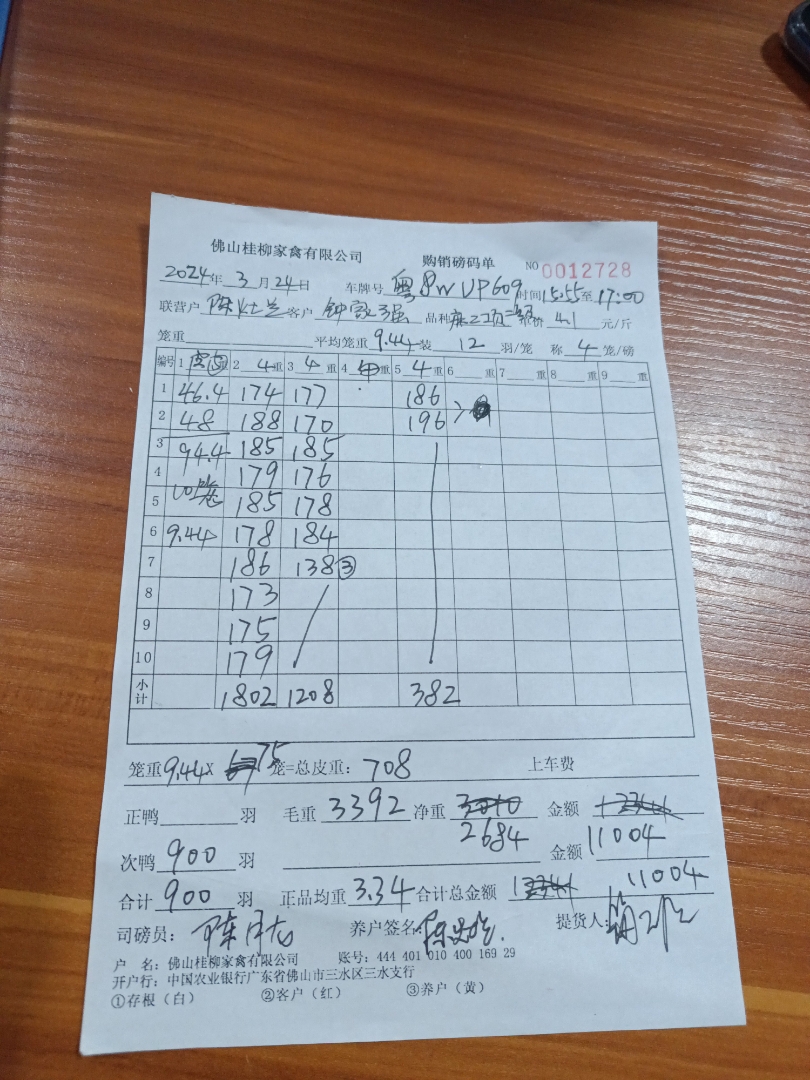 佛山桂柳家禽有限公司 购销磅码单 NO 0012728
2024年3月24日 车牌号 粤 时间15:55至17:00
联营户 陈 客户 钟 强 品种 单价 4.1 元/斤
笼重 平均笼重9.44装 12 羽/笼 称 4 笼/磅
编号 1 重 2 4重 3 4重 4 重 5 4重 6 重 7 重 8 重 9 重
1 46.4 174 177 186
2 48 188 170 196
3 94.4 185 185
4 179 176
5 185 178
6 9.44 178 184
7 186 138 ③
8 173
9 175
10 179
小计 1802 1208 382
笼重9.44× 75 笼=总皮重: 708 上车费
正鸭 羽 毛重 3392 净重 金额
2684
次鸭 900 羽 金额 11004
合计 900 羽 正品均重 3.34 合计总金额 11004
司磅员: 陈 养户签名 陈 提货人:
户 名: 佛山桂柳家禽有限公司 账号: 444 401 010 400 169 29
开户行: 中国农业银行广东省佛山市三水区三水支行
①存根(白) ②客户(红) ③养户(黄)